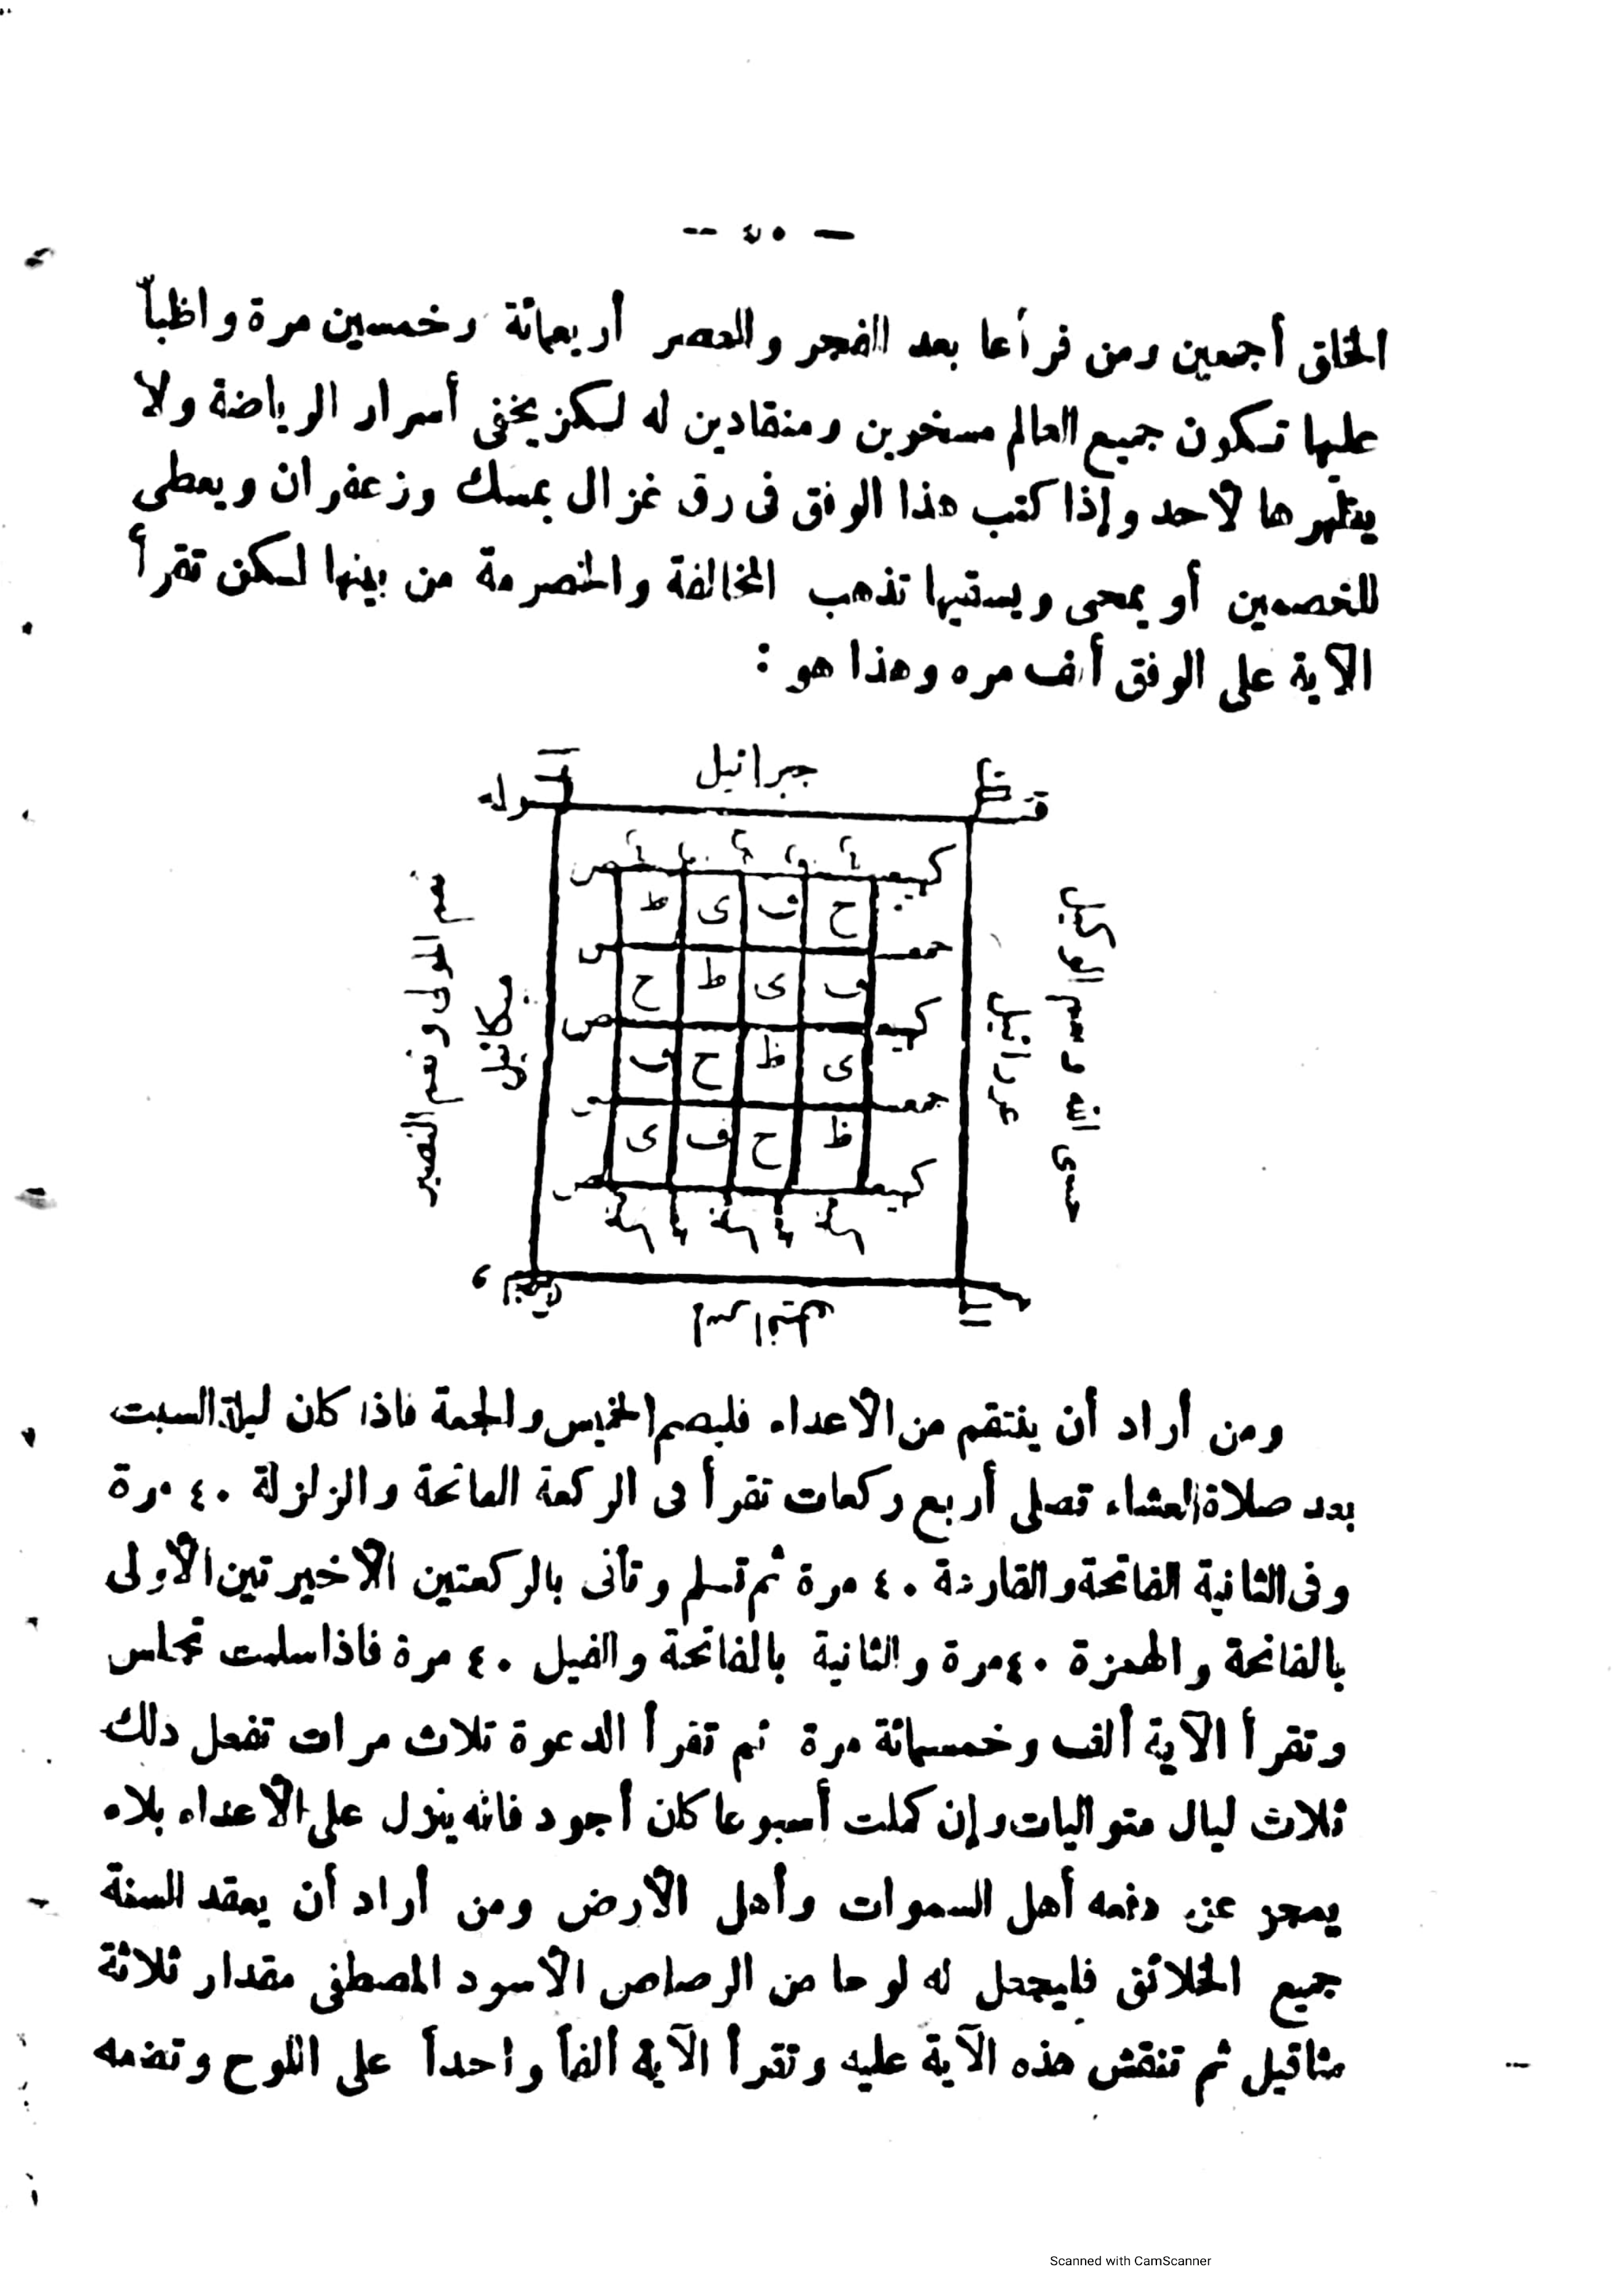 الخلق أجمعين ومن قرأها بعد الفجر والعصر أربعمائة وخمسين مرة واظباً
عليها تكون جميع العالم مسخرين ومنقادين له لكن يخفى أسرار الرياضة ولا
يظهرها لأحد وإذا كتب هذا الوفق فى رق غزال بمسك وزعفران ويعطى
للخصمين أو يمحى ويسقيها تذهب المخالفة والخصومة من بينها لكن تقرأ
الآية على الوفق ألف مره وهذا هو :
جبرائيل
قوله
كهيعص
ح ف ى ظ
حمعسق
ف ى ظ ح
كهيعص
ى ظ ح ف
حمعسق
ظ ح ف ى
كهيعص
حسبى الله ونعم الوكيل
عزرائيل
ميكائيل
نعم المولى ونعم النصير
اسرافيل
ومن أراد أن ينتقم من الأعداء فليصم الخميس والجمعة فاذا كان ليلة السبت
بعد صلاة العشاء تصلى أربع ركعات تقرأ فى الركعة الفاتحة والزلزلة ٤٠ مرة
وفى الثانية الفاتحة والقارعة ٤٠ مرة ثم تسلم وتأتى بالركعتين الأخيرتين الأولى
بالفاتحة والهمزة ٤٠ مرة والثانية بالفاتحة والفيل ٤٠ مرة فاذا سلمت تجلس
وتقرأ الآية ألف وخمسمائة مرة ثم تقرأ الدعوة ثلاث مرات تفعل ذلك
ثلاث ليال متواليات وإن كملت أسبوعا كان أجود فانه ينزل على الأعداء بلاء
يعجز عن دفعه أهل السموات وأهل الأرض ومن أراد أن يعقد السنة
جميع الخلائق فليجعل له لوحا من الرصاص الأسود المصطفى مقدار ثلاثة
مثاقيل ثم تنقش هذه الآية عليه وتقرأ الآية ألفاً واحداً على اللوح وتضعه
Scanned with CamScanner